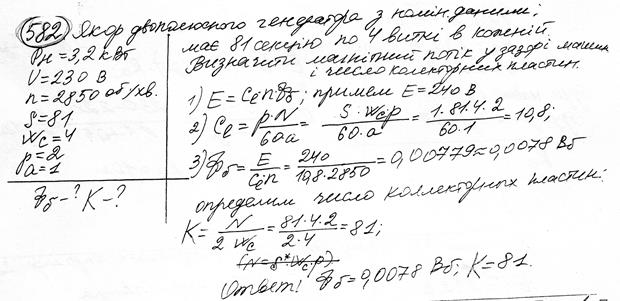 582 Якор двополюсного генератора з номін. даними,
Pн = 3,2 кВт
U = 230 В
n = 2850 об/хв.
S = 81
Wc = 4
p = 2
a = 1
Фδ - ? K - ?
має 81 секцію по 4 витки в кожній.
Визначити магнітний потік у зазорі машини
і число колекторних пластин.
1) E = Ce n Фδ; примем E = 240 В
2) Ce = p·N / 60a = S·Wc·p / 60·a = 1·81·4·2 / 60·1 = 10,8;
3) Фδ = E / Ce·n = 240 / 10,8·2850 = 0,00779 ≈ 0,0078 Вб
определим число коллекторных пластин:
K = N / 2 Wc = 81·4·2 / 2·4 = 81;
(N = S*Wc·p)
Ответ: Фδ = 0,0078 Вб; K = 81.